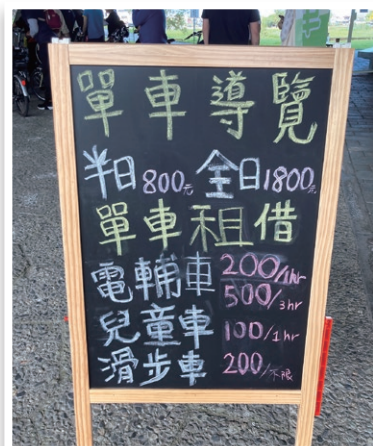 單車導覽
半日800元 全日1800元
單車租借
電輔車 200/1hr
500/3hr
兒童車 100/1hr
滑步車 200/不限